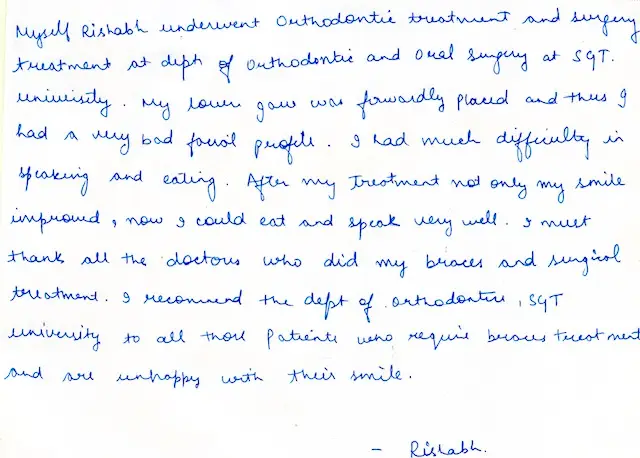 Myself Rishabh underwent Orthodontic treatment and surgery
treatment at dept of Orthodontic and Oral surgery at SGT.
University. My lower jaw was forwardly placed and thus I
had a very bad facial profile. I had much difficulty in
speaking and eating. After my Treatment not only my smile
improved, now I could eat and speak very well. I must
thank all the doctors who did my braces and surgical
treatment. I recommend the dept of orthodontics, SGT
university to all those patients who require braces treatment
and are unhappy with their smile.
- Rishabh.